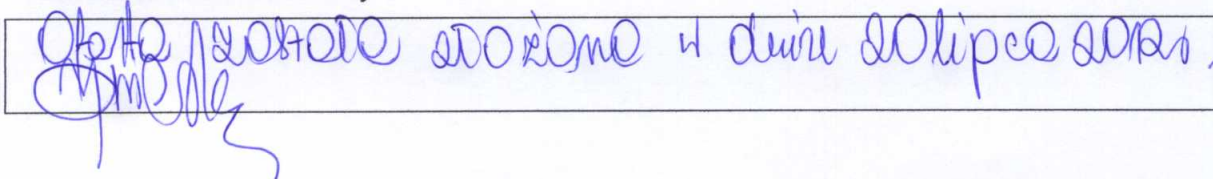 Oferta została złożona w dniu 20 lipca 2012r.